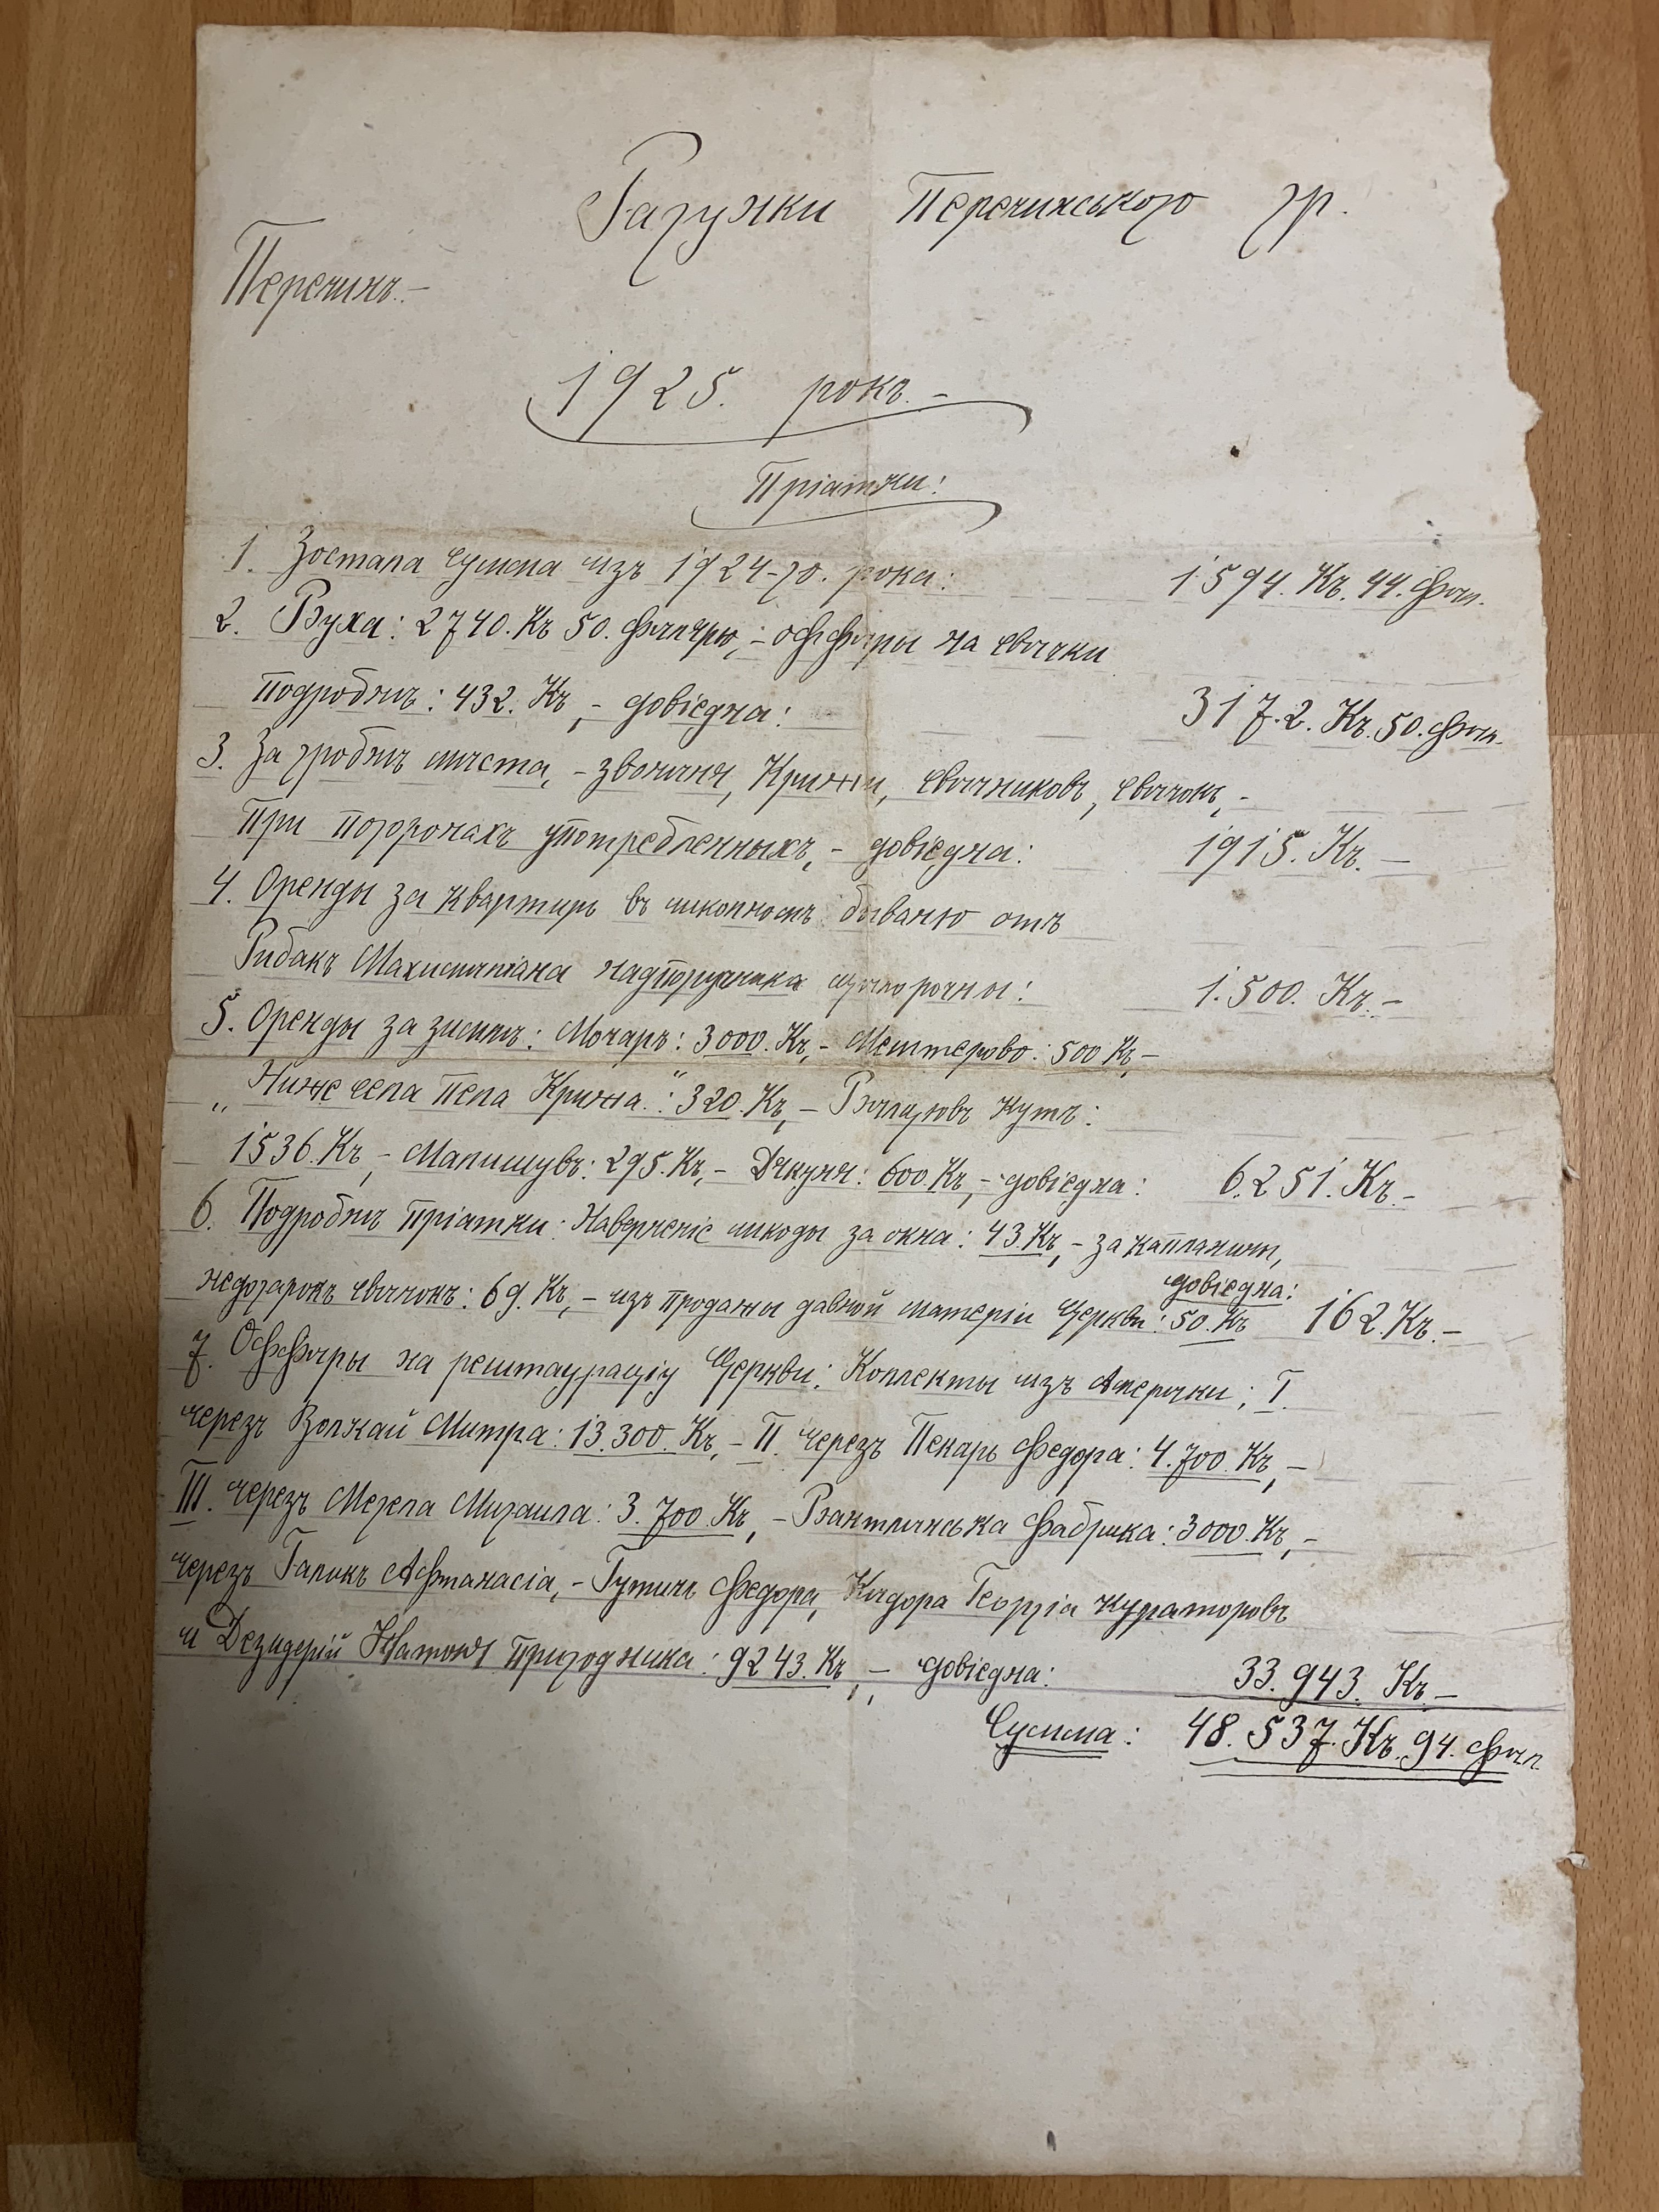 Рагунки Перечинського гр.
Перечинъ.–
1925. рокъ.–
Пріатки:
1. Зостала сумма изъ 1924-го. рока: 1594. Кч. 44. Фил.
2. Рука: 2740. Кч 50. филѣры, – офѣры на свѣчки
подробнѣ: 432. Кч, – довіедна: 3172. Кч. 50. Фил.
3. За гробнѣ мѣста, – звонѣня, Крижи, свѣчниковъ, свѣчокъ, –
При погронахъ употребленныхъ, – довіедна: 1915. Кч. –
4. Оренды за квартиръ въ школномъ бываню отъ
Рибакъ Махимилiана надпоручника рочны: 1.500. Кч. –
5. Оренды за землѣ: Мочаръ: 3000. Кч, – Мештерово: 500 Кч, –
„Ниже села пела Крижа.“: 320. Кч, – Кутъ:
1536. Кч, – Малишувъ: 295. Кч, – : 600. Кч, – довіедна: 6.251. Кч. –
6. Подробнѣ пріатки: Наверненіе шкоды за окна: 43. Кч, – за
недогарокъ свѣчокъ: 69. Кч, – изъ продажи давной матеріи Церкви: 50. Кч довіедна: 162. Кч. –
7. Оффѣры на рештаурацію Церкви: Коллекты изъ Америки; I.
черезъ Волкай Митра: 13.300. Кч, – II. черезъ Пекарь Федора: 4.700. Кч, –
III. черезъ Мегела Мигаила: 3.700. Кч, – Бантлинська Фабрика: 3000. Кч, –
черезъ Галикъ Афтанасіа, – Гутичъ Федора, Кѣдора Георгіа кураторовъ
и Дезидерій пригодника: 9243. Кч, – довіедна: 33.943. Кч –
Сумма: 48.537. Кч. 94. Фил.